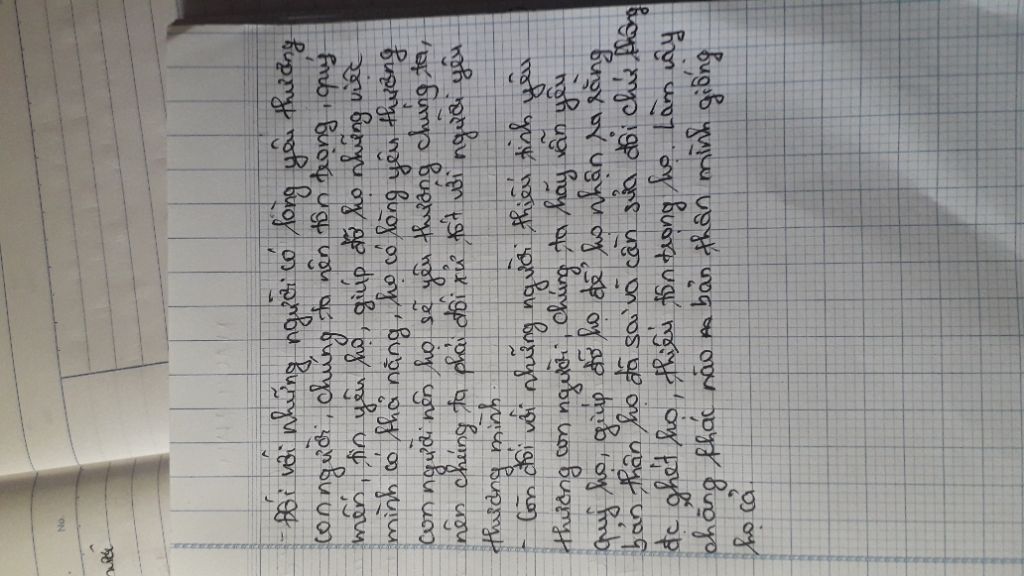 - Đối với những người có lòng yêu thương
con người, chúng ta nên tôn trọng, quý
mến, tin yêu họ, giúp đỡ họ những việc
mình có khả năng, họ có lòng yêu thương
con người nên họ sẽ yêu thương chúng ta,
nên chúng ta phải đối xử tốt với người yêu
thương mình.
- Còn đối với những người thiếu tình yêu
thương con người, chúng ta hãy vẫn yêu
quý họ, giúp đỡ họ để họ nhận ra rằng
bản thân họ đã sai và cần sửa đổi chứ không
đc ghét họ, thiếu tôn trọng họ. Làm vậy
chẳng khác nào bản thân mình giống
họ cả.
No.